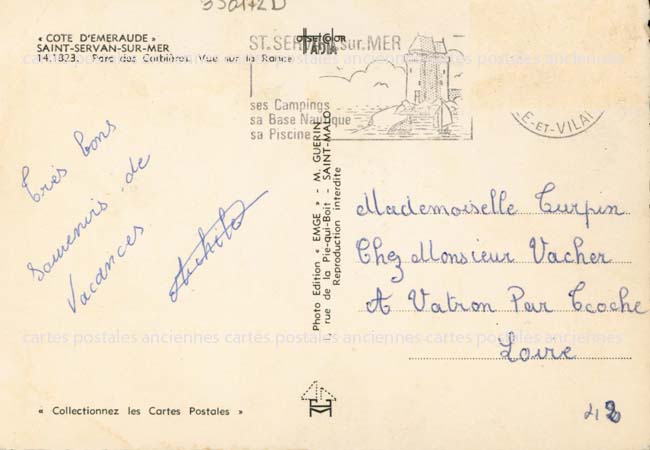 350172D
« COTE D'EMERAUDE »
SAINT-SERVAN-SUR-MER
14.1823. Parc des Corbières. Vue sur la Rance
ST. SERVAN sur. MER
ses Campings
sa Base Nautique
sa Piscine
E-ET-VILAI
cartes postales anciennes cartes postales anciennes cartes postales anciennes
Très bons
souvenirs de
Vacances
Photo Edition « EMGE » - M. GUERIN
, rue de la Pie-qui-Boit - SAINT-MALO
Reproduction interdite
Mademoiselle Turpin
Chez Monsieur Vacher
A Vatron Par
Loire
cartes postales anciennes cartes postales anciennes cartes postales anciennes
« Collectionnez les Cartes Postales »
42